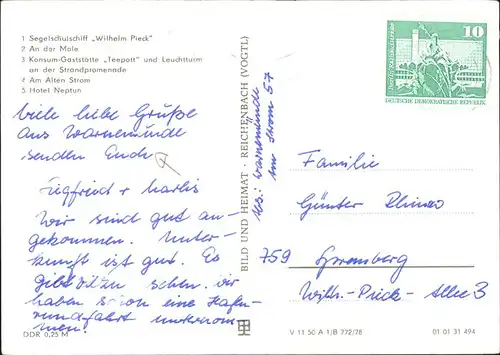 1 Segelschulschiff „Wilhelm Pieck"
2 An der Mole
3 Konsum-Gaststätte „Teepott" und Leuchtturm
an der Strandpromenade
4 Am Alten Strom
5 Hotel Neptun
Viele liebe Grüße
aus Warnemünde
senden Euch
Siegfried + Marlis
Wir sind gut an-
gekommen. Unter-
kunft ist gut. Es
gibt viel zu sehen. Wir
haben schon eine Hafen-
rundfahrt unternom-
men!
DDR 0,25 M
BILD UND HEIMAT · REICHENBACH (VOGTL)
Abs.: Warnemünde
Am Strom 57
10
DEUTSCHE DEMOKRATISCHE REPUBLIK
Familie
Günter
759 Spremberg
Wilh.-Pieck-Allee 3
V 11 50 A 1/B 772/78
01 01 31 494